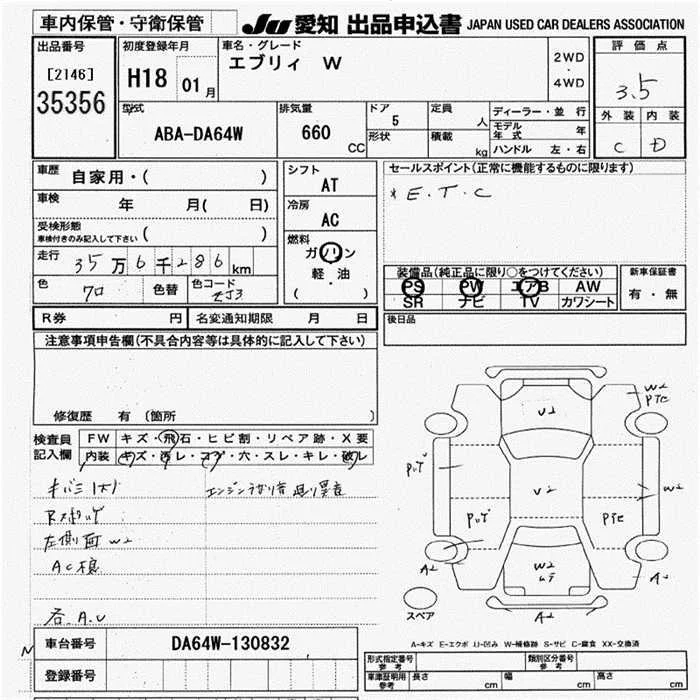 車内保管・守衛保管
JU 愛知 出品申込書 JAPAN USED CAR DEALERS ASSOCIATION
出品番号
[2146]
35356
初度登録年月
H18 01月
車名・グレード
エブリィ W
2WD
・
4WD
評価点
3.5
外装 内装
C D
型式
ABA-DA64W
排気量
660 CC
ドア
5
形状
定員
人
積載
kg
ディーラー・並行
モデル年式 年
ハンドル 左・右
車歴
自家用・( )
車検
年 月( 日)
受検形態
車検付きのみ記入して下さい ( )
走行
35万6千286km
色
クロ
色替
色コード
ZJ3
シフト
AT
冷房
AC
燃料
ガソリン
軽・油
( )
セールスポイント(正常に機能するものに限ります)
* E.T.C
装備品(純正品に限り○をつけてください)
PS PW エアB AW
SR ナビ TV カワシート
新車保証書
有・無
後日品
R券 円 名変通知期限 月 日
注意事項申告欄(不具合内容等は具体的に記入して下さい)
修復歴 有 〔箇所 〕
検査員
記入欄
FW キズ・飛石・ヒビ割・リペア跡・X要
内装 キズ・汚レ・コゲ・穴・スレ・キレ・破レ
エンジンうなり音 走り異音
左側面 W2
各 A.U
U2
W2
PTE
U2
W2
PTE
W2
A2
A2
A2
スペア
A-キズ E-エクボ U-凹み W-補修跡 S-サビ C-腐食 XX-交換済
車台番号 DA64W-130832
登録番号
形式指定番号
参考
類別区分番号
参考
車庫証明用
参考
長さ cm 幅 cm 高さ cm